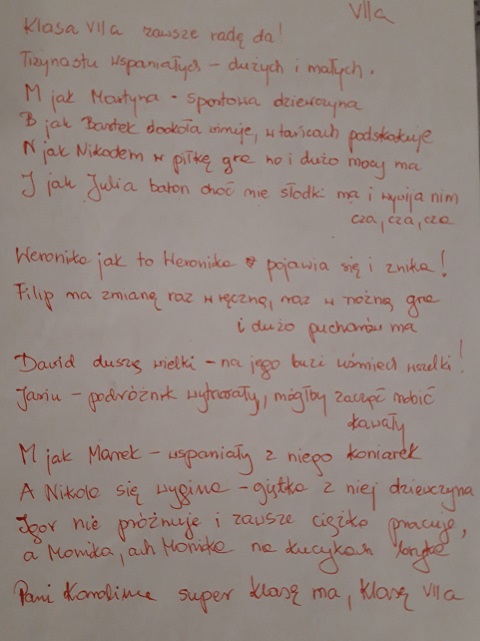 VIIa
Klasa VIIa zawsze radę da!
Trzynastu wspaniałych - dużych i małych.
M jak Martyna - sportowa dziewczyna
B jak Bartek dookoła wiruje, w tańcach podskakuje
N jak Nikodem w piłkę gra no i dużo mocy ma
J jak Julia baton choć nie słodki ma i wywija nim
cza, cza, cza
Weronika jak to Weronika pojawia się i znika!
Filip ma zmianę raz w ręczną, raz w nożną gra
i dużo pucharów ma
Dawid duszą wielki - na jego buzi uśmiech wszelki!
Jasiu - podróżnik wytrwały, mógłby zacząć robić
kawały
M jak Marek - wspaniały z niego koniarek
A Nikola się wygina - giętka z niej dziewczyna
Igor nie próżnuje i zawsze ciężko pracuje,
a Monika, ach Monika na kucykach
Pani Karolina super klasę ma, klasę VIIa